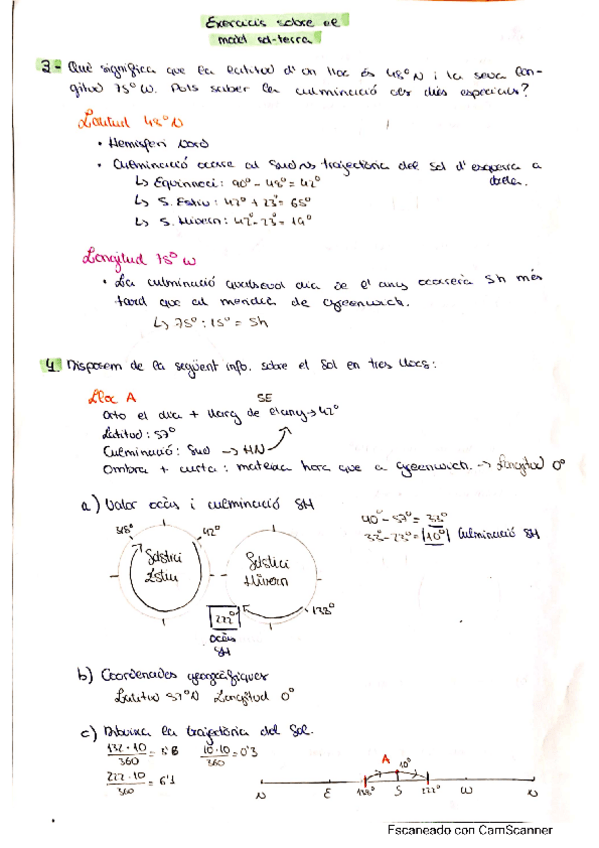 Exercicis sobre el
model sol-terra
3- Què significa que la latitud d'un lloc és 48° N i la seva lon-
gitud 75° W. Pots saber la culminació dels dies especials?
Latitud 48° N
• Hemisferi Nord
• Culminació ocorre al Sud trajectòria del Sol d'esquerra a
dreta.
↳ Equinocci: 90° - 48° = 42°
↳ S. Estiu: 42° + 23° = 65°
↳ S. Hivern: 42° - 23° = 19°
Longitud 75° W
• La culminació qualsevol dia de l'any ocorrerà 5h més
tard que al meridià de Greenwich.
↳ 75° : 15° = 5h
4. Disposem de la següent info. sobre el Sol en tres llocs:
Lloc A
SE
Orto el dia + llarg de l'any → 42°
Latitud: 57°
Culminació: Sud → HN
Ombra + curta: mateixa hora que a Greenwich. → Longitud 0°
a) Valor ocàs i culminació SH
90° - 57° = 33°
33° - 23° = 10° Culminació SH
318°
42°
Solstici
Estiu
Solstici
Hivern
138°
222°
ocàs
SH
b) Coordenades geogràfiques
Latitud 57° N Longitud 0°
c) Dibuixa la trajectòria del Sol.
10·10 / 360 = 0'3
222·10 / 360 = 6'1
A
10°
N E 138° S 222° W N
Escaneado con CamScanner